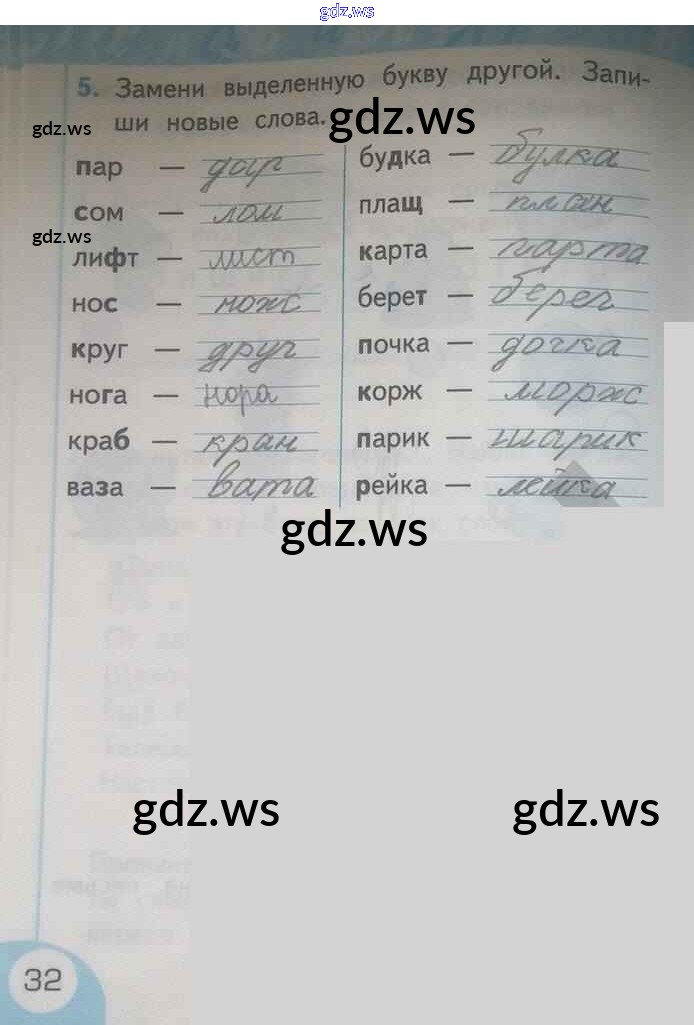 gdz.ws
5. Замени выделенную букву другой. Запи-
gdz.ws ши новые слова. gdz.ws
пар — дар
сом — лом
gdz.ws
лифт — лист
нос — нож
круг — друг
нога — нора
краб — кран
ваза — вата
будка — булка
плащ — план
карта — парта
берет — берег
почка — дочка
корж — морж
парик — шарик
рейка — лейка
gdz.ws
gdz.ws gdz.ws
32